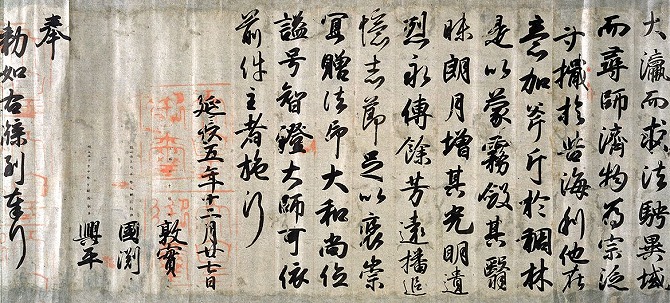 大瀛而求法騁異域
而尋師濟物為宗泛
寸檝於苦海利他在
意加斧斤於稠林
是以蒙霧斂其翳
昧朗月增其光明遺
烈永傳餘芳遠播追
憶志節足以褒崇
冝贈法印大和尚位
謚号智證大師可依
前件主者施行
延長五年十二月廿七日
敦實
國淵
興平
奉
勅如右牒到奉行